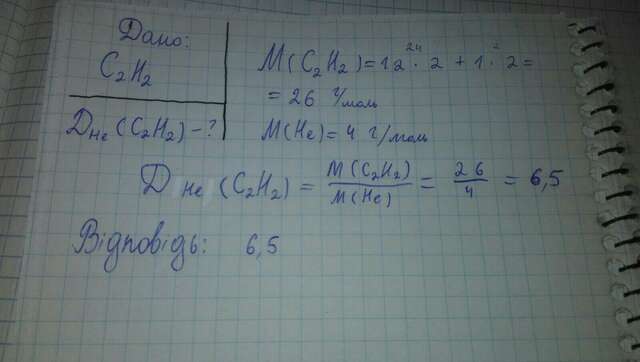 Дано:
C₂H₂
D He (C₂H₂) – ?
M(C₂H₂) = 12 · 2 + 1 · 2 =
24 2
= 26 г/моль
M(He) = 4 г/моль
D He (C₂H₂) = M(C₂H₂) / M(He) = 26 / 4 = 6,5
Відповідь: 6,5